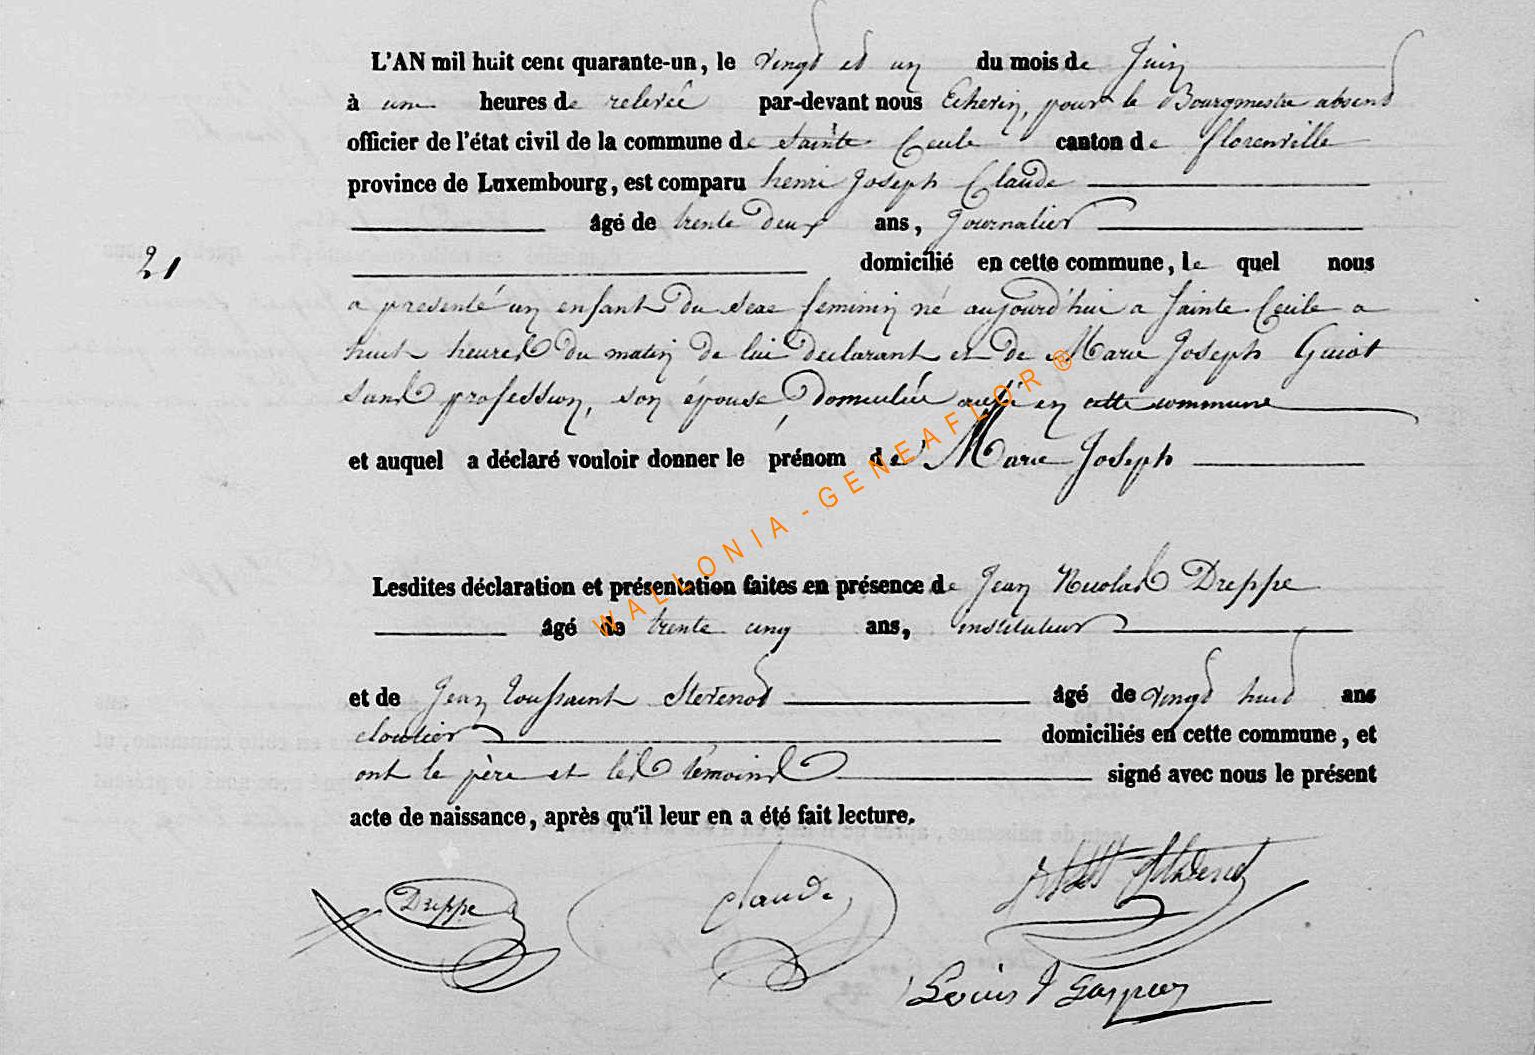 L'AN mil huit cent quarante-un, le vingt et un du mois de Juin
à une heures de relevée par-devant nous Echevin, pour le Bourgmestre absent
officier de l'état civil de la commune de Sainte Cecile canton de florenville
province de Luxembourg, est comparu henri Joseph Claude
âgé de trente deux ans, journalier
21
domicilié en cette commune, le quel nous
a presenté un enfant du sexe feminin né aujourd'hui a Sainte Cecile a
huit heures du matin de lui declarant et de Marie Joseph Guiot
sans profession, son épouse, domiciliée aussi en cette commune
et auquel a déclaré vouloir donner le prénom de Marie Joseph
WALLONIA - GENEAFLOR ®
Lesdites déclaration et présentation faites en présence de Jean Nicolas Dreppe
âgé de trente cinq ans, instituteur
et de Jean Toussaint Stevenot âgé de vingt huit ans
cloutier domiciliés en cette commune, et
ont le père et les témoins signé avec nous le présent
acte de naissance, après qu'il leur en a été fait lecture.
Dreppe Claude Stevenot
Louis J